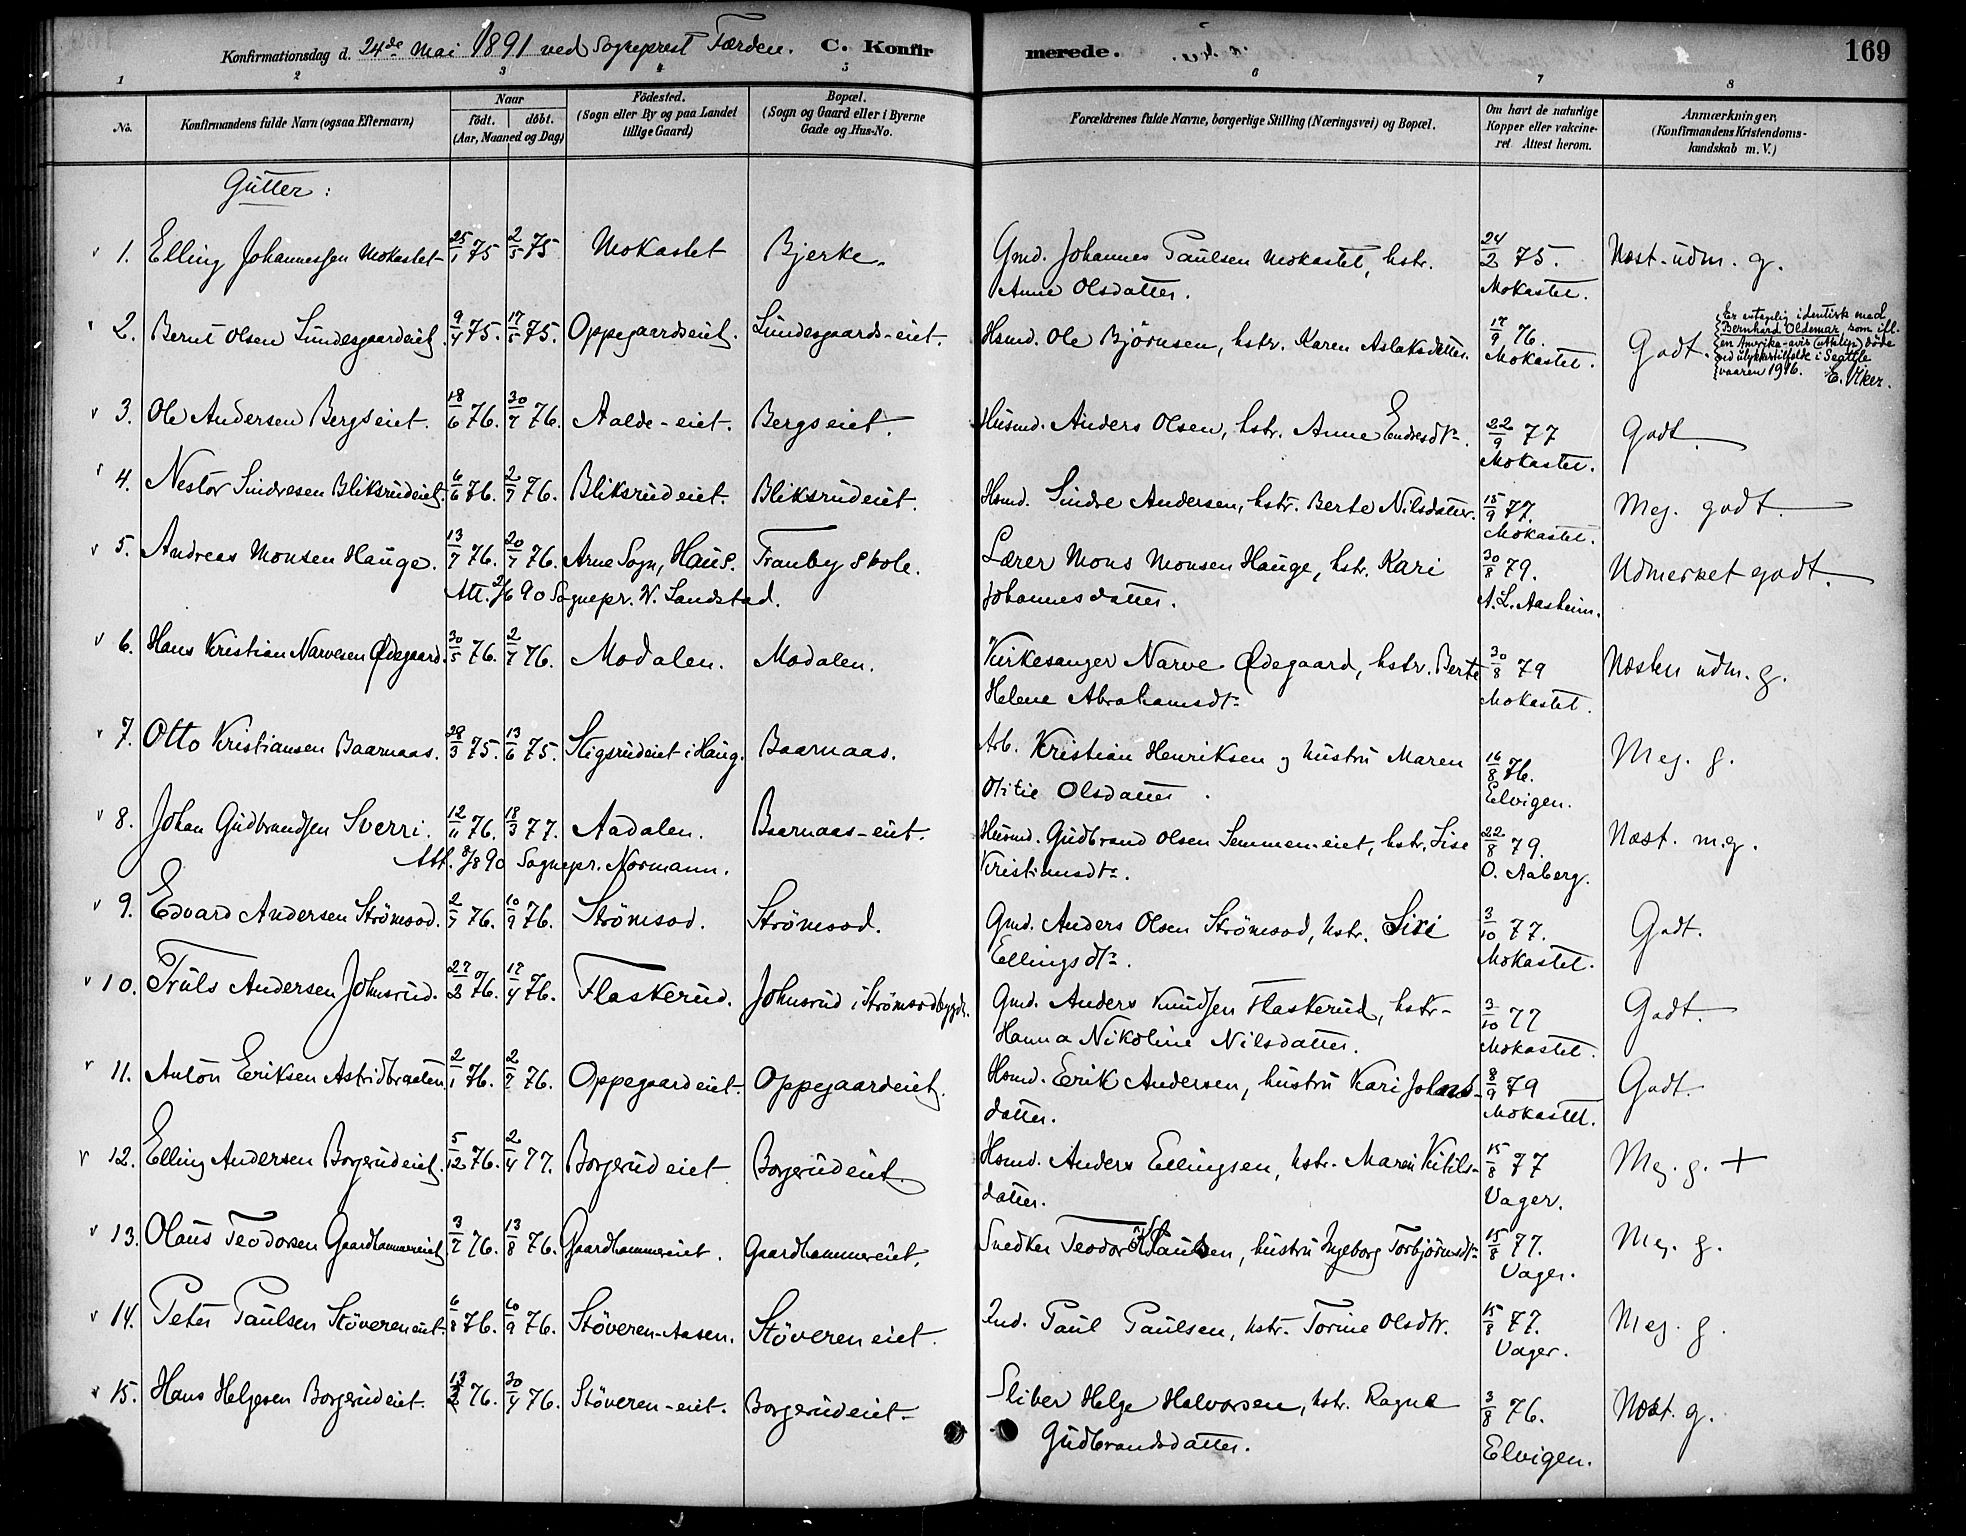 Konfirmationsdag d. 24de Mai 1891 ved Sogneprest Færden. C. Konfir merede. 169
1 2 3 4 5 6 7 8
No. Konfirmandens fulde Navn (ogsaa Efternavn) Naar födt. döbt. (Aar, Maaned og Dag) Födested. (Sogn eller By og paa Landet tillige Gaard) Bopæl. (Sogn og Gaard eller i Byerne Gade og Hus-No. Forældrenes fulde Navne, borgerlige Stilling (Næringsvei) og Bopæl. Om havt de naturlige Kopper eller vakcineret Attest herom. Anmærkninger, (Konfirmandens Kristendomskundskab m. V.)
Gutter:
1. Elling Johannessen Mokastet 25/1 75 2/5 75 Mokastet Bjerke. Gmd. Johannes Paulsen Mokastet, hstr. 24/2 75. Næst. udm. g.
Anne Olsdatter. Mokastet.
2. Bernt Olsen Lundesgaardeiet 9/4 75. 17/5 75. Oppegaardseiet. Lundesgaards-eiet. Hsmd. Ole Björnsen, hstr. Karen Aslaksdatter. 17/9 76. Godt.
Mokastet.
Er antagelig identisk med
Bernhard Oldemar, som ifl.
en Amerika-avis døde
ved ulykkestilfelde i Seattle
vaaren 1916. E. Viker.
3. Ole Andersen Bergseiet. 18/6 76. 30/7 76. Aalde-eiet. Bergseiet. Husmd. Anders Olsen, hstr. Anne Endresdtr. 22/9 77 Godt.
Mokastet.
4. Nestor Sindresen Bliksrudeiet. 6/6 76. 2/7 76. Bliksrudeiet. Bliksrudeiet. Hsmd. Sindre Andersen, hstr. Berte Nilsdatter. 15/9 77. Meg. godt.
Mokastet.
5. Andreas Monsen Hauge. 13/7 76. 20/7 76. Arne Sogn, Haus. Tranby Skole. Lærer Mons Monsen Hauge, hstr. Kari 30/8 79. Udmerket godt.
Att. 2/6 90 Sognepr. V. Landstad. Johannesdatter. A. L. Aasheim.
6. Hans Kristian Narvesen Ødegaard. 30/5 76. 2/7 76. Modalen. Modalen. Kirkesanger Narve Ødegaard, hstr. Berte 30/8 79 Næsten udm. g.
Helene Abrahamsdtr. Mokastet.
7. Otto Kristiansen Baarnaas. 28/3 75. 13/6 75. Stigsrudeiet i Haug. Baarnaas. Arb. Kristian Henriksen og hustru Maren 16/8 76. Meg. g.
Otilie Olsdatter. Elvigen.
8. Johan Gudbrandsen Sverri. 12/11 76. 18/3 77. Aadalen. Baarnaas-eiet. Husmd. Gudbrand Olsen Semmen-eiet, hstr. Lise 22/8 79. Næst. m.g.
Att. 8/8 90 Sognepr. Normann. Kristiansdtr. O. Aaberg.
9. Edvard Andersen Strömsod. 2/7 76. 10/9 76. Strömsod. Strömsod. Gmd. Anders Olsen Strömsod, hstr. Siri 3/10 77. Godt.
Ellingsdtr. Mokastet.
10. Truls Andersen Johnsrud. 27/2 76. 17/4 76. Flaskerud. Johnsrud i Strömsodbygd. Gmd. Anders Knudsen Flaskerud, hstr. 3/10 77 Godt.
Hanna Nikoline Nilsdatter. Mokastet.
11. Anton Eriksen Astridbraaten. 2/1 76. 2/7 76. Oppegaardeiet. Oppegaardeiet. Hsmd. Erik Andersen, hustru Kari Johans- 8/9 79 Godt.
datter. Mokastet.
12. Elling Andersen Borgerudeiet. 5/12 76. 2/4 77. Borgerudeiet Borgerudeiet. Hsmd. Anders Ellingsen, hstr. Maren Kitils- 15/8 77 Meg. g. +
datter. Vager.
13. Olaus Teodorsen Gaardhammereiet 3/7 76. 13/8 76. Gaardhammereiet. Gaardhammereiet. Snedker Teodor Paulsen, hustru Ingeborg Torbjörnsdtr. 15/8 77. Meg. g.
Vager.
14. Peter Paulsen Stöverneiet. 6/8 76. 10/9 76. Stöveren-Aasen. Stövereneiet. Ind. Paul Paulsen, hstr. Torine Olsdtr. 15/8 77. Meg. g.
Vager.
15. Hans Helgesen Borgerudeiet. 76. 30/4 76. Stöveren-eiet. Borgerudeiet. Sliber Helge Halvorsen, hstr. Ragne 3/8 76. Næst. g.
Gudbrandsdatter. Elvigen.